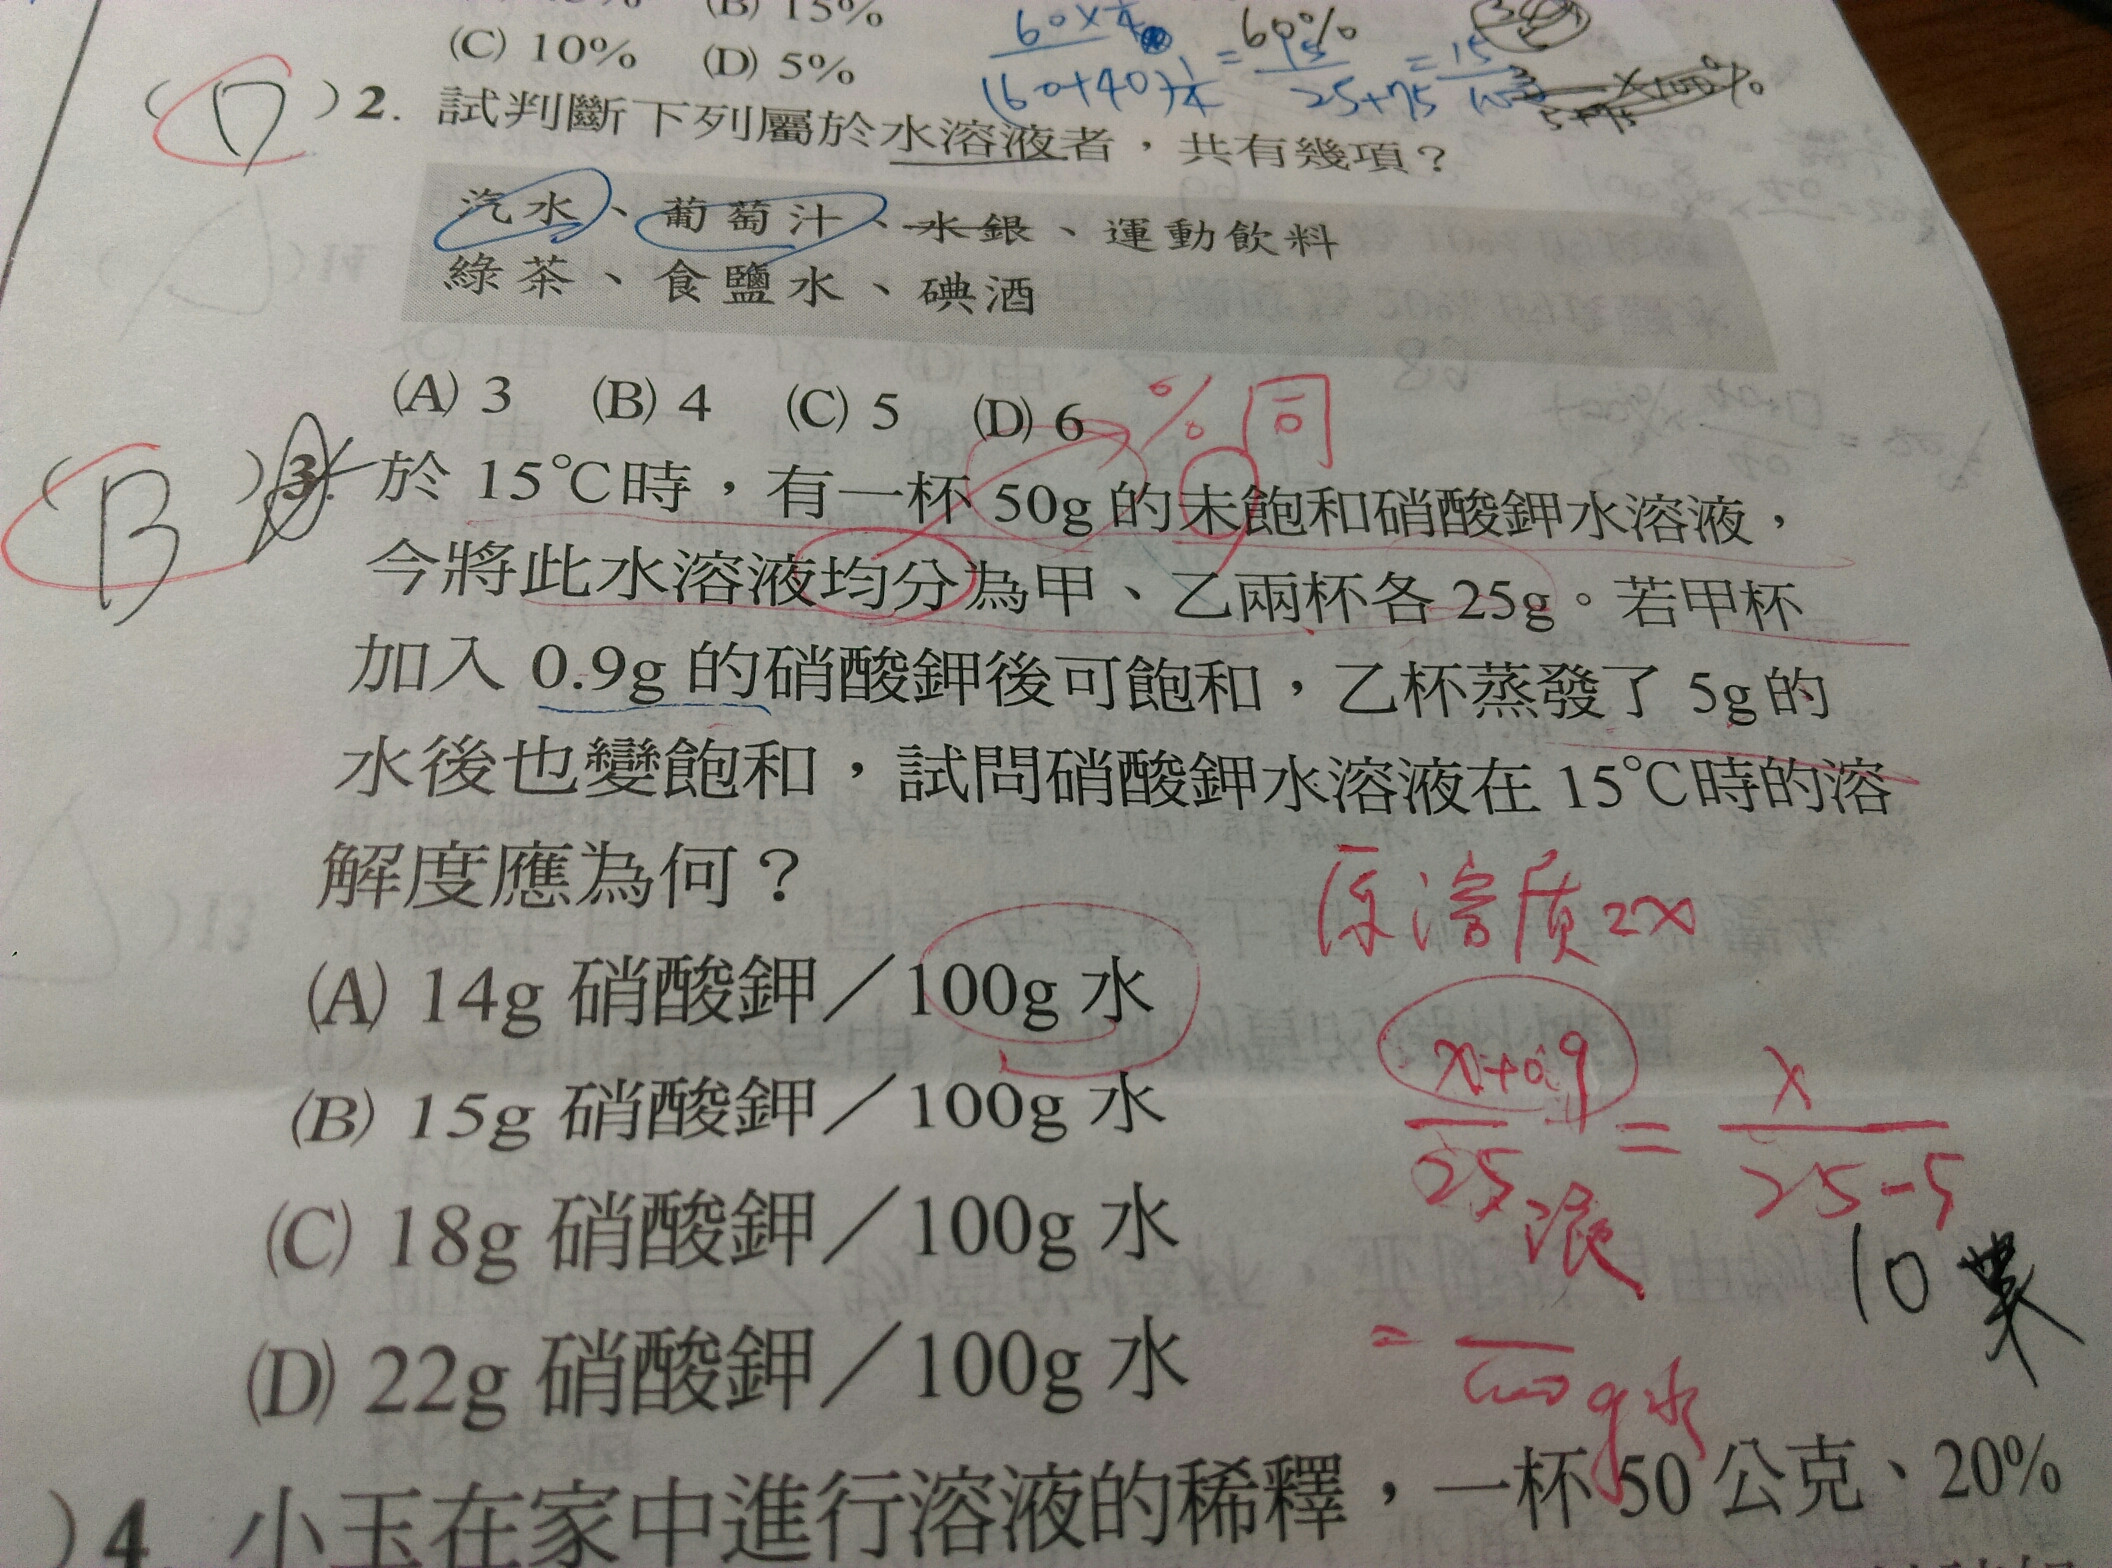 (B) 15%
(C) 10% (D) 5%
60%
(D)2. 試判斷下列屬於水溶液者，共有幾項？
汽水、葡萄汁、水銀、運動飲料
綠茶、食鹽水、碘酒
(A) 3 (B) 4 (C) 5 (D) 6
% 同
(B)3. 於 15℃時，有一杯 50g 的未飽和硝酸鉀水溶液，
今將此水溶液均分為甲、乙兩杯各 25g。若甲杯
加入 0.9g 的硝酸鉀後可飽和，乙杯蒸發了 5g 的
水後也變飽和，試問硝酸鉀水溶液在 15℃時的溶
解度應為何？
原溶质2x
(A) 14g 硝酸鉀／100g 水
x+0.9 / 25 = x / 25-5
(B) 15g 硝酸鉀／100g 水
(C) 18g 硝酸鉀／100g 水
10
(D) 22g 硝酸鉀／100g 水
= 100g水
)4. 小玉在家中進行溶液的稀釋，一杯 50 公克、20%